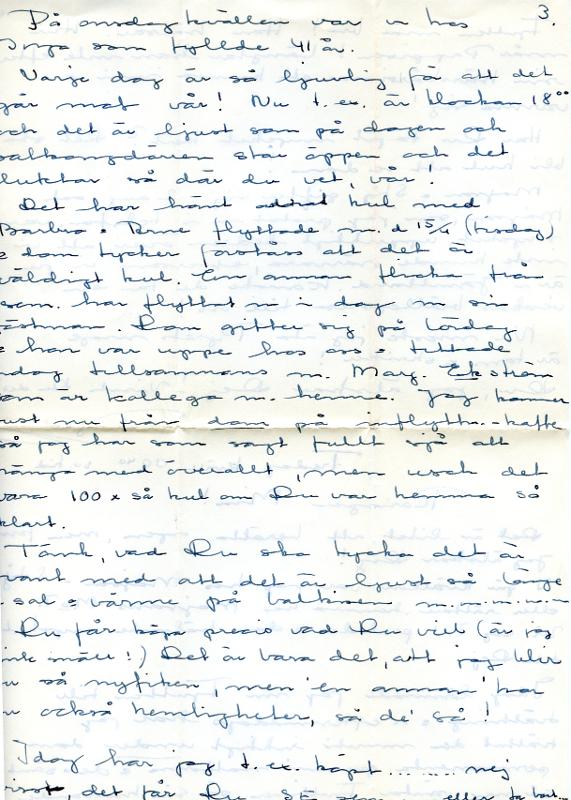 3.
På onsdag kvällen var vi hos
som fyllde 41 år.
Varje dag är så ljuvlig få att det
går mot vår! Nu t. ex. är klockan 18⁰⁰
och det är ljust som på dagen och
balkongdörren står öppen och det
luktar så där du vet, vår!
Det har hänt kul med
Barbro + flyttade in d 15/4 (tisdag)
som tycker förståss att det är
väldigt kul. En annan flicka från
har flyttat in i dag m sin
fästman. Dom gifter sig på lördag
han var uppe hos oss + tittade
tillsammans m. Marg. Ekström
som är kollega m. henne. Jag kommer
just nu från dom på inflyttn.-kaffe
så jag har som sagt fullt sjå att
hänga med överallt, men usch det
vara 100 x så kul om Du var hemma så
klart.
Tänk, vad Du ska tycka det är
med att det är ljust så länge
+ sol + värme på balkisen m.m.m.m
Du får köpa precis vad Du vill (är jag
inte snäll!) Det är bara det, att jag blir
så nyfiken, men 'en annan' har
också hemligheter, så de' så!
Idag har jag t. ex. köpt ........ nej
det får Du SE